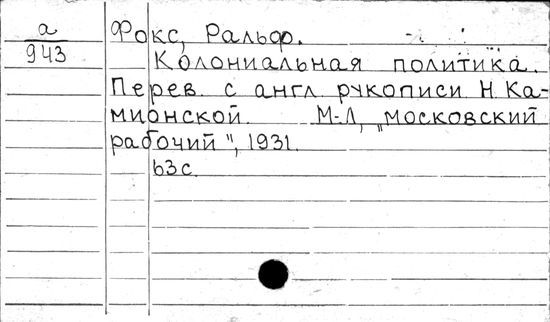 а
943
Фокс, Ральф.
Колониальная политика.
Перев. с англ. рукописи Н. Ка-
мионской. М-Л, „московский
рабочий", 1931.
63с.